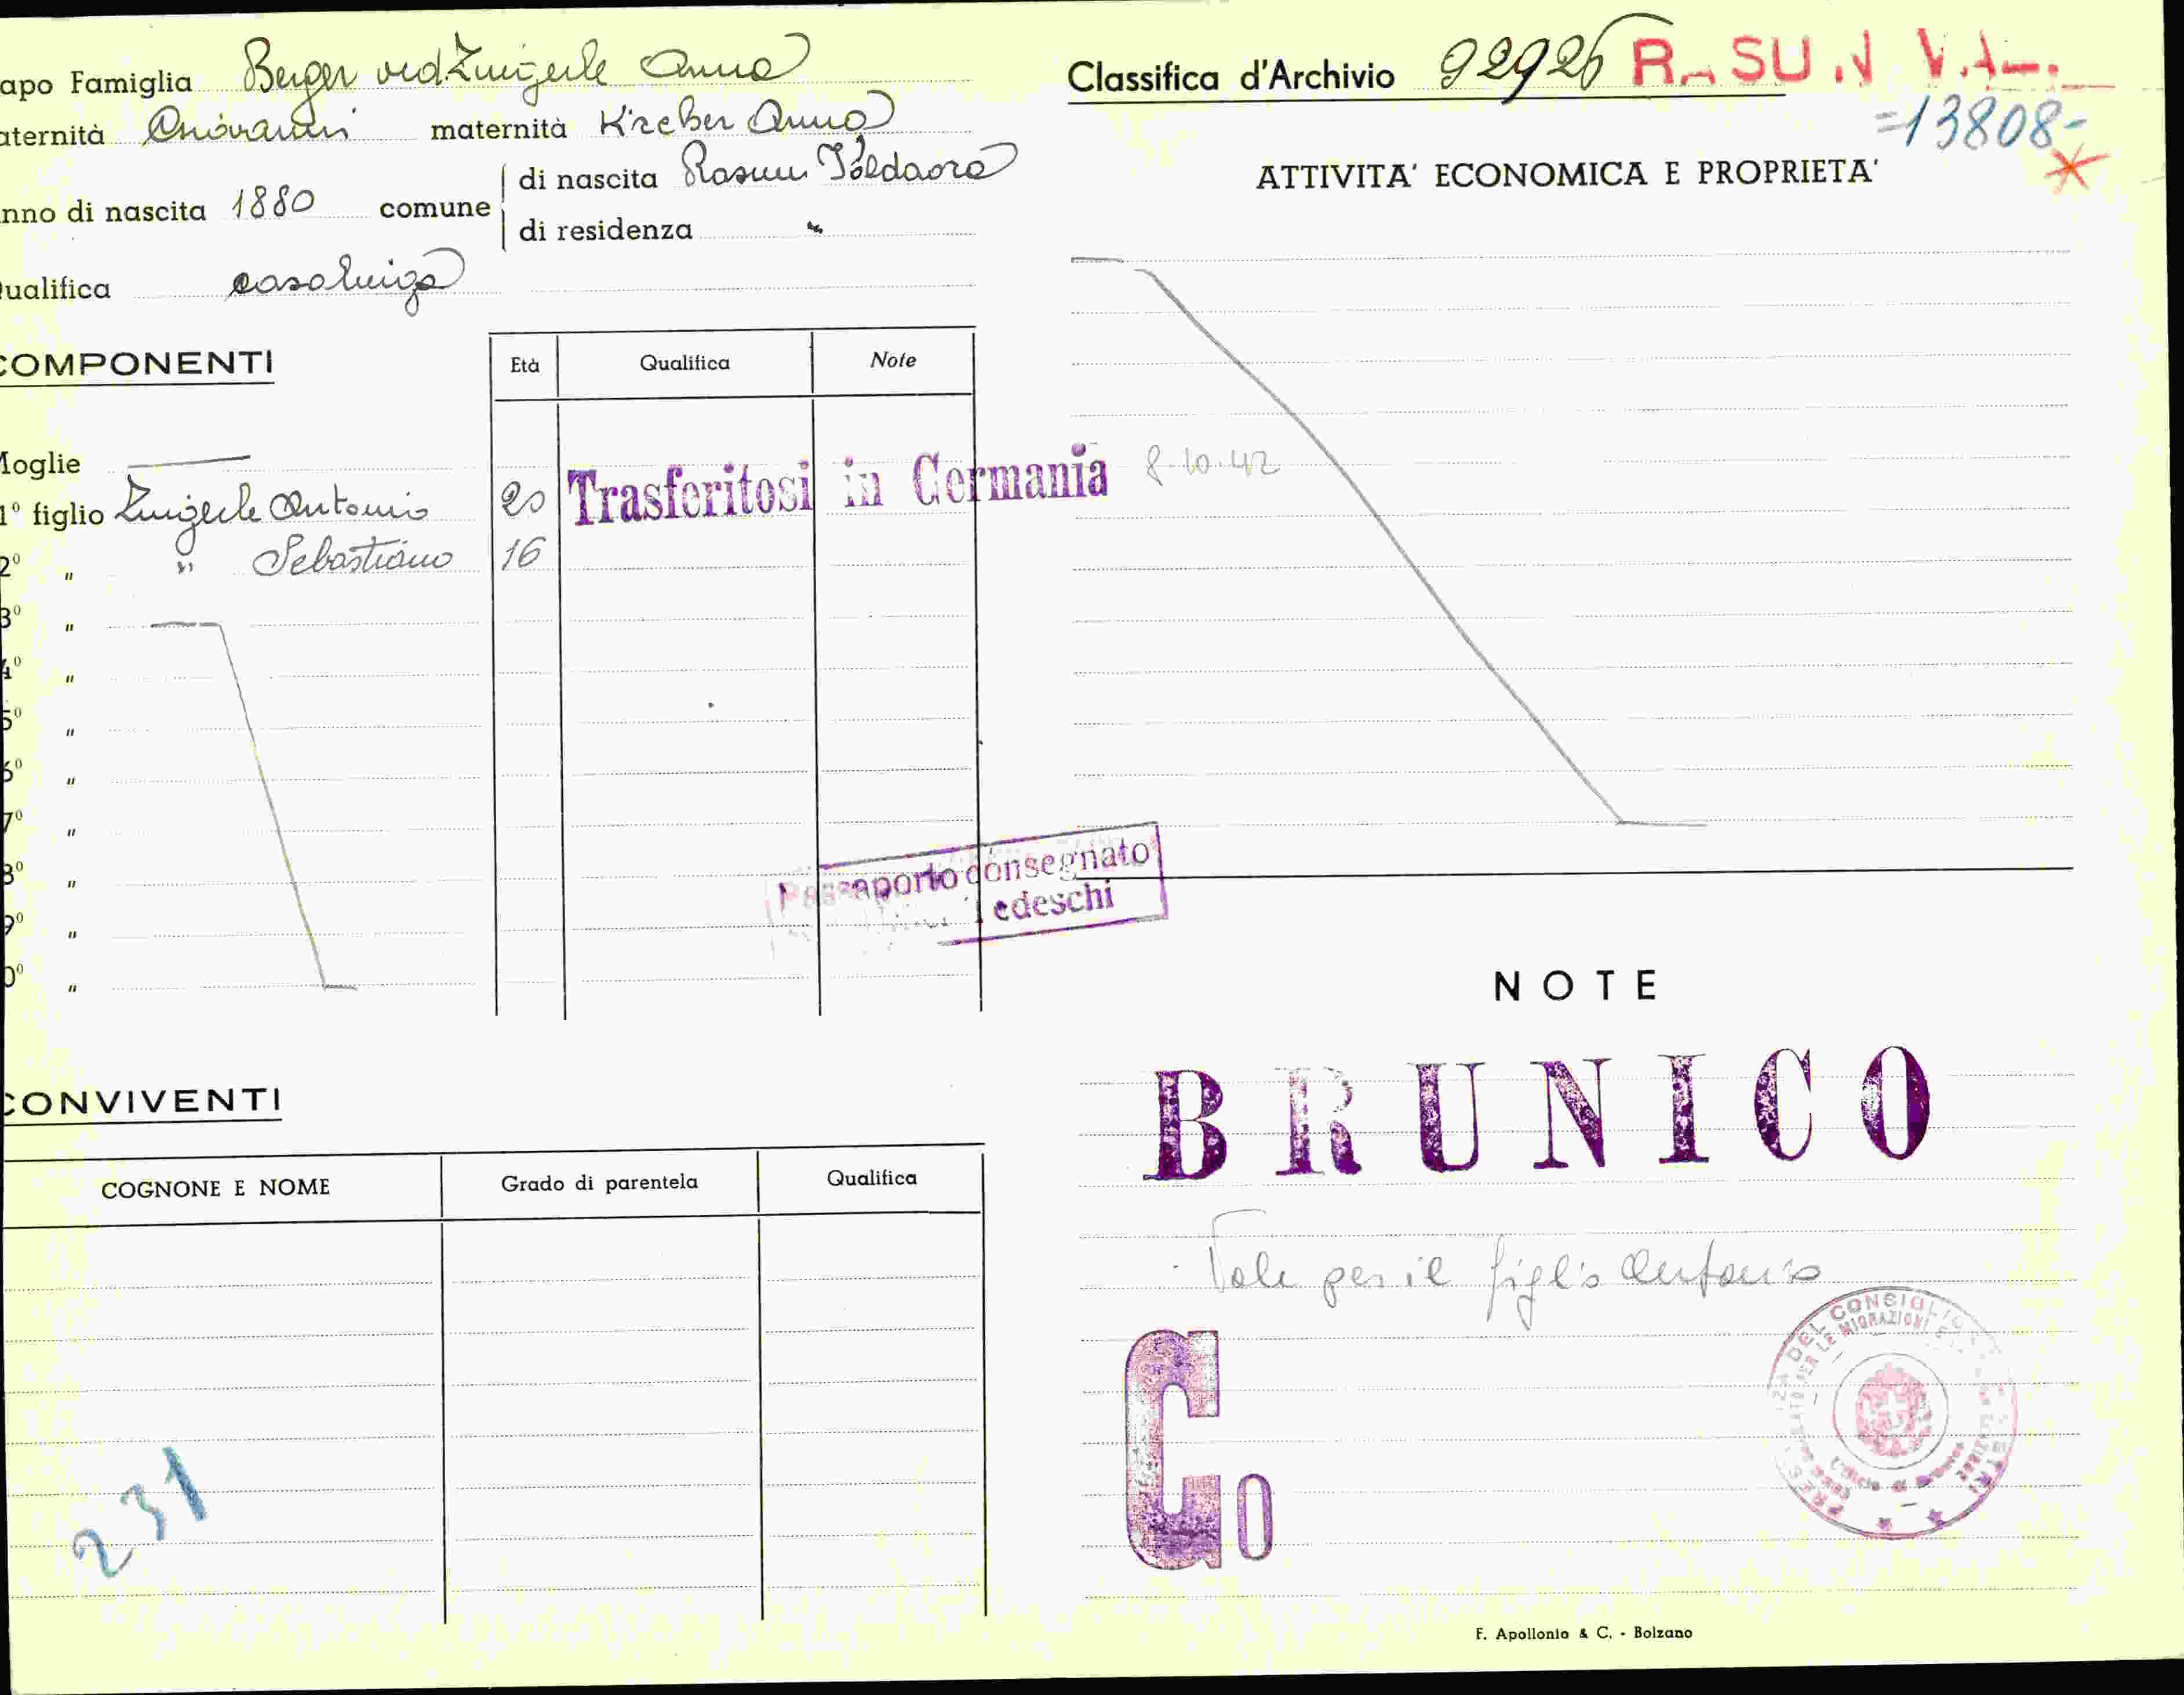 apo Famiglia Berger ved Zingerle Anna
aternità Giovanni maternità Kreber Anna
nno di nascita 1880 comune di nascita Rasun Valdaora
di residenza "
ualifica casalinga
COMPONENTI
Età Qualifica Note
Moglie
1° figlio Zingerle Antonio 20 Trasferitosi in Germania 8.10.42
2° " " Sebastiano 16
3° "
4° "
5° "
6° "
7° "
8° "
9° "
0° "
Passaporto consegnato
edeschi
CONVIVENTI
COGNONE E NOME Grado di parentela Qualifica
231
Classifica d'Archivio 92926 RASUN VAL.
=13808-
ATTIVITA' ECONOMICA E PROPRIETA'
NOTE
BRUNICO
Vale per il figlio Antonio
Go
DEL CONSIGLIO
PER LE MIGRAZIONI E
F. Apollonio & C. - Bolzano